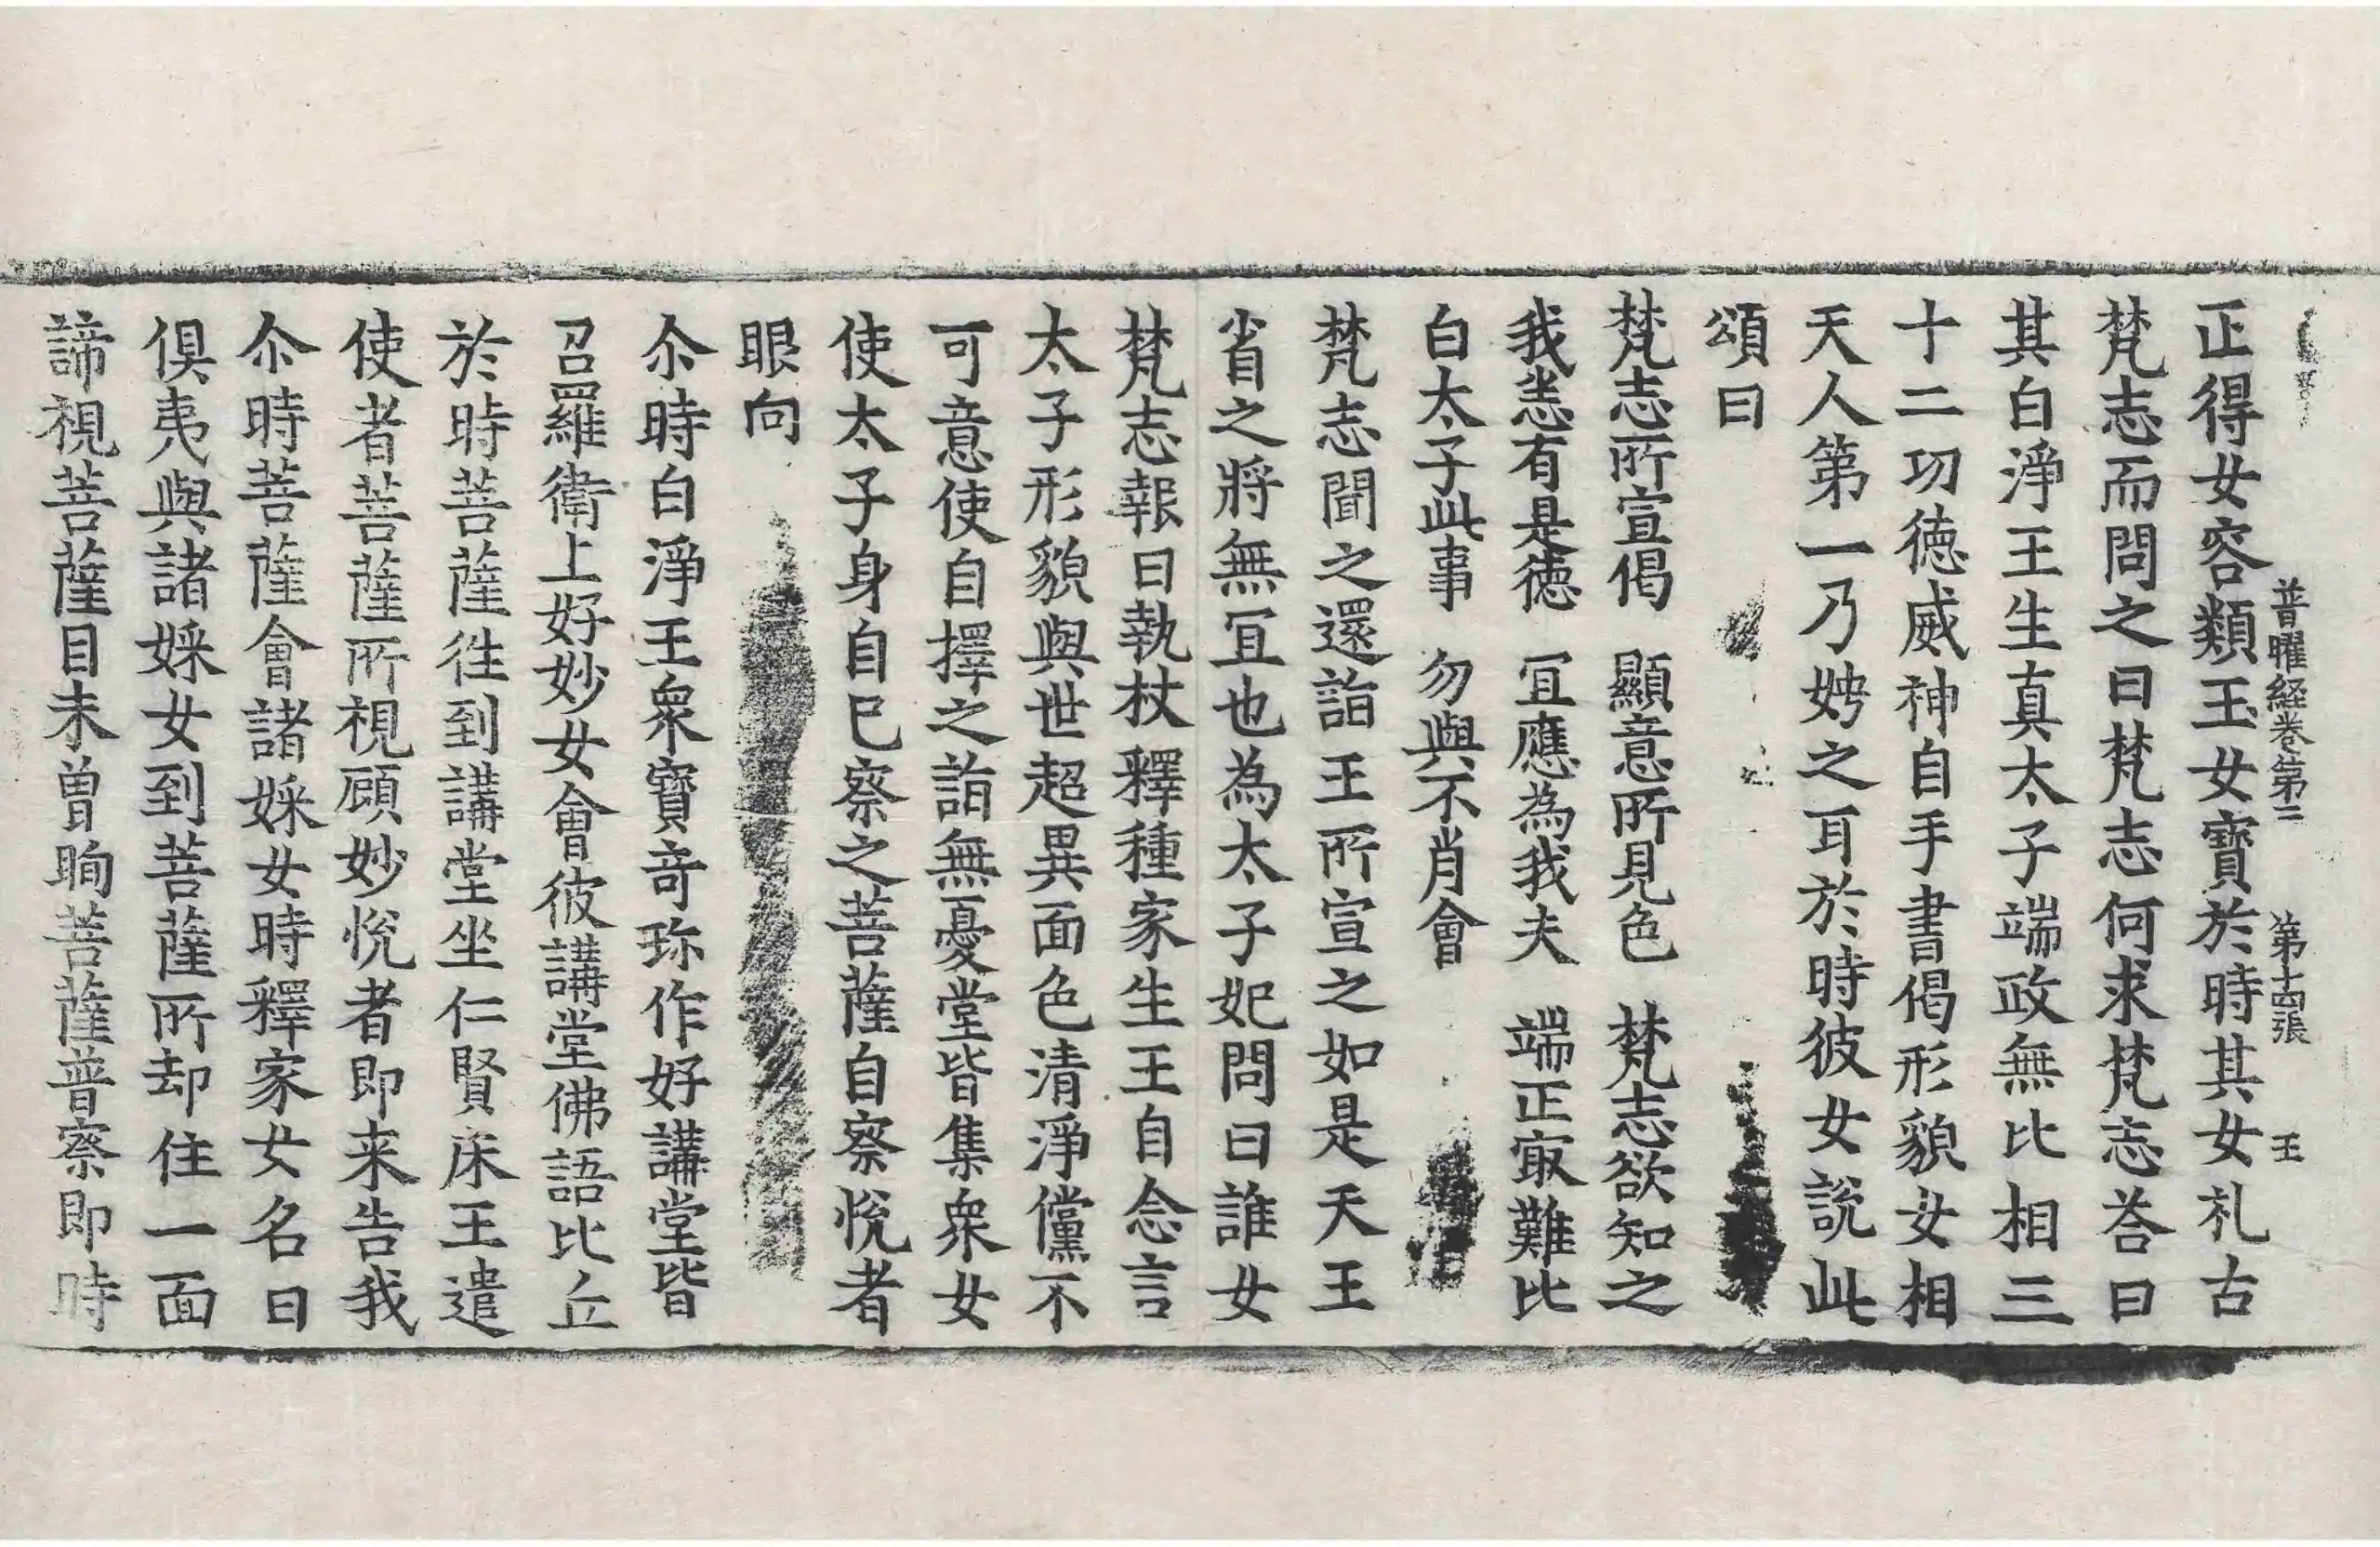 普曜経卷第三 第十四張 王
正得女容類玉女寶於時其女礼古
梵志而問之曰梵志何求梵志荅曰
其白淨王生真太子端政無比相三
十二功德威神自手書偈形貌女相
天人第一乃娉之耳於時彼女說此
頌曰
梵志所宣偈 顯意所見色 梵志欲知之
我恙有是德 冝應為我夫 端正㝡難比
白太子此事 勿與不肖會
梵志聞之還詣王所宣之如是天王
省之將無冝也為太子妃問曰誰女
梵志報曰執杖釋種家生王自念言
太子形貌與世超異面色清淨儻不
可意使自擇之詣無憂堂皆集衆女
使太子身自巳察之菩薩自察恱者
眼向
尒時白淨王衆寶竒珎作好講堂皆
召羅衛上好妙女會彼講堂佛語比丘
於時菩薩徃到講堂坐仁賢床王遣
使者菩薩所視顧妙恱者即来告我
尒時菩薩會諸婇女時釋家女名曰
俱夷與諸婇女到菩薩所却住一面
諦視菩薩目未曾眴菩薩普察即時